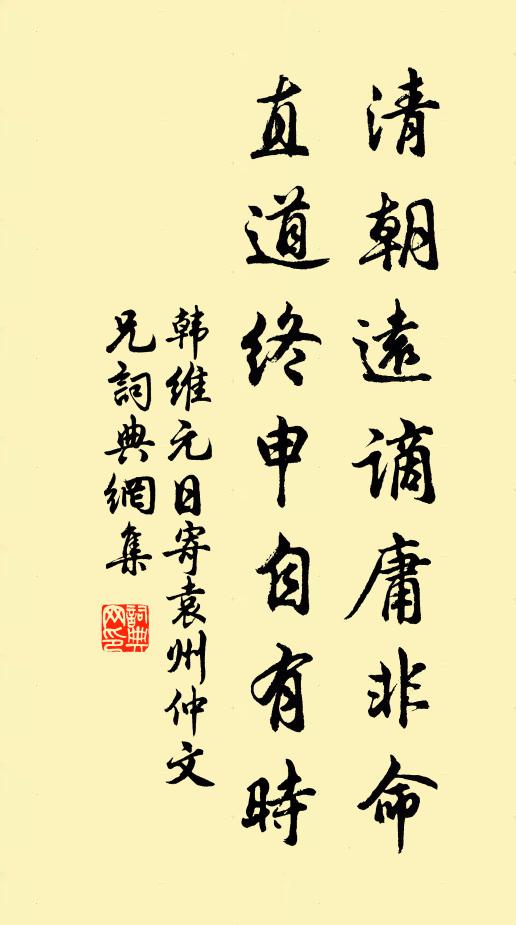 清朝遠謫庸非命
直道終申自有時
韩維元日寄袁州仲文
兄詞典網集
詞典
网印